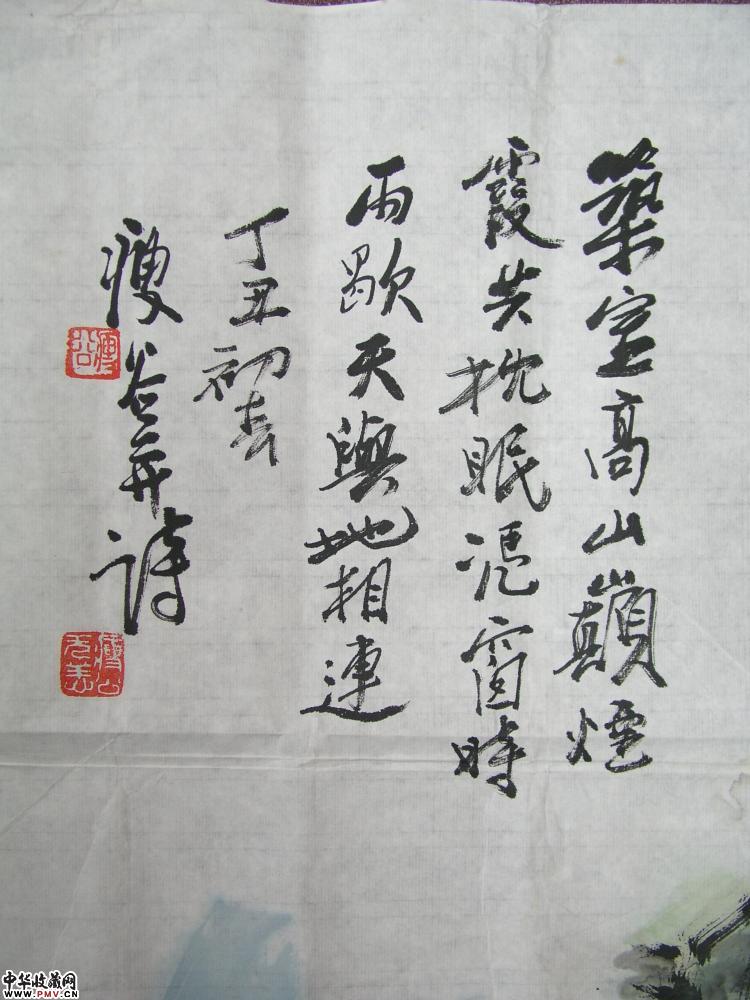 築室高山巔煙
霞共枕眠憑窗時
雨歇天與地相連
丁丑初春
瘦谷并詩
瘦谷
中华收藏网
www.PMV.CN